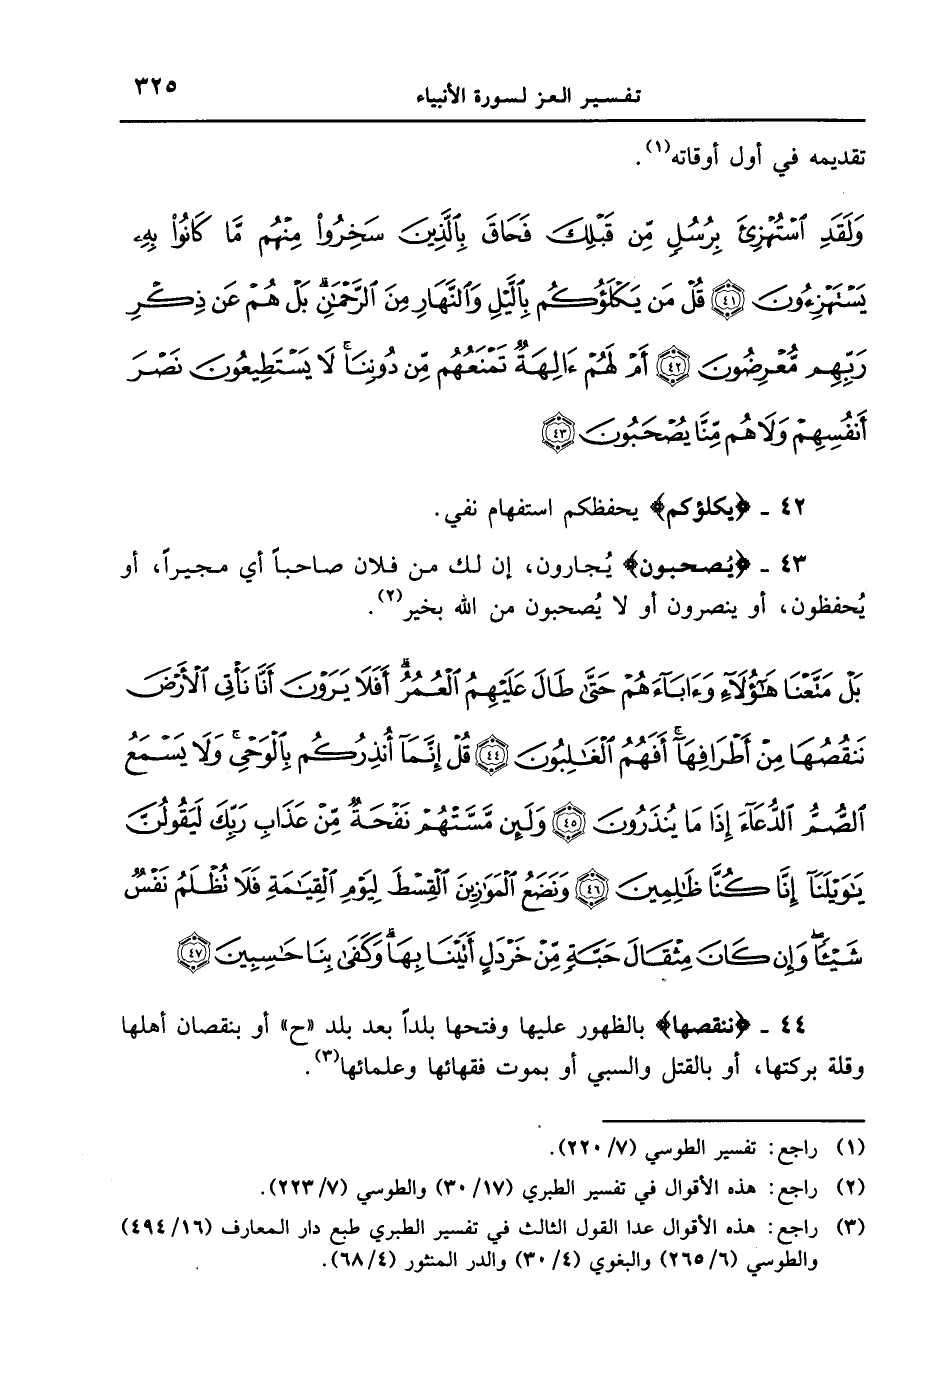 تفسير العز لسورة الأنبياء ٣٢٥
تقديمه في أول أوقاته(١).
وَلَقَدِ ٱسْتُهْزِئَ بِرُسُلٍ مِّن قَبْلِكَ فَحَاقَ بِٱلَّذِينَ سَخِرُوا۟ مِنْهُم مَّا كَانُوا۟ بِهِۦ
يَسْتَهْزِءُونَ ﴿٤١﴾ قُلْ مَن يَكْلَؤُكُم بِٱلَّيْلِ وَٱلنَّهَارِ مِنَ ٱلرَّحْمَٰنِ ۗ بَلْ هُمْ عَن ذِكْرِ
رَبِّهِم مُّعْرِضُونَ ﴿٤٢﴾ أَمْ لَهُمْ ءَالِهَةٌ تَمْنَعُهُم مِّن دُونِنَا ۚ لَا يَسْتَطِيعُونَ نَصْرَ
أَنفُسِهِمْ وَلَا هُم مِّنَّا يُصْحَبُونَ ﴿٤٣﴾
٤٢ ـ ﴿يكلؤكم﴾ يحفظكم استفهام نفي.
٤٣ ـ ﴿يُصحبون﴾ يُجارون، إن لك من فلان صاحباً أي مجيراً، أو
يُحفظون، أو ينصرون أو لا يُصحبون من الله بخير(٢).
بَلْ مَتَّعْنَا هَٰٓؤُلَآءِ وَءَابَآءَهُمْ حَتَّىٰ طَالَ عَلَيْهِمُ ٱلْعُمُرُ ۗ أَفَلَا يَرَوْنَ أَنَّا نَأْتِى ٱلْأَرْضَ
نَنقُصُهَا مِنْ أَطْرَافِهَآ ۚ أَفَهُمُ ٱلْغَٰلِبُونَ ﴿٤٤﴾ قُلْ إِنَّمَآ أُنذِرُكُم بِٱلْوَحْىِ ۚ وَلَا يَسْمَعُ
ٱلصُّمُّ ٱلدُّعَآءَ إِذَا مَا يُنذَرُونَ ﴿٤٥﴾ وَلَئِن مَّسَّتْهُمْ نَفْحَةٌ مِّنْ عَذَابِ رَبِّكَ لَيَقُولُنَّ
يَٰوَيْلَنَآ إِنَّا كُنَّا ظَٰلِمِينَ ﴿٤٦﴾ وَنَضَعُ ٱلْمَوَٰزِينَ ٱلْقِسْطَ لِيَوْمِ ٱلْقِيَٰمَةِ فَلَا تُظْلَمُ نَفْسٌ
شَيْـًٔا ۖ وَإِن كَانَ مِثْقَالَ حَبَّةٍ مِّنْ خَرْدَلٍ أَتَيْنَا بِهَا ۗ وَكَفَىٰ بِنَا حَٰسِبِينَ ﴿٤٧﴾
٤٤ ـ ﴿ننقصها﴾ بالظهور عليها وفتحها بلداً بعد بلد «ح» أو بنقصان أهلها
وقلة بركتها، أو بالقتل والسبي أو بموت فقهائها وعلمائها(٣).
(١) راجع: تفسير الطوسي (٧/ ٢٢٠).
(٢) راجع: هذه الأقوال في تفسير الطبري (١٧/ ٣٠) والطوسي (٧/ ٢٢٣).
(٣) راجع: هذه الأقوال عدا القول الثالث في تفسير الطبري طبع دار المعارف (١٦/ ٤٩٤)
والطوسي (٦/ ٢٦٥) والبغوي (٤/ ٣٠) والدر المنثور (٤/ ٦٨).